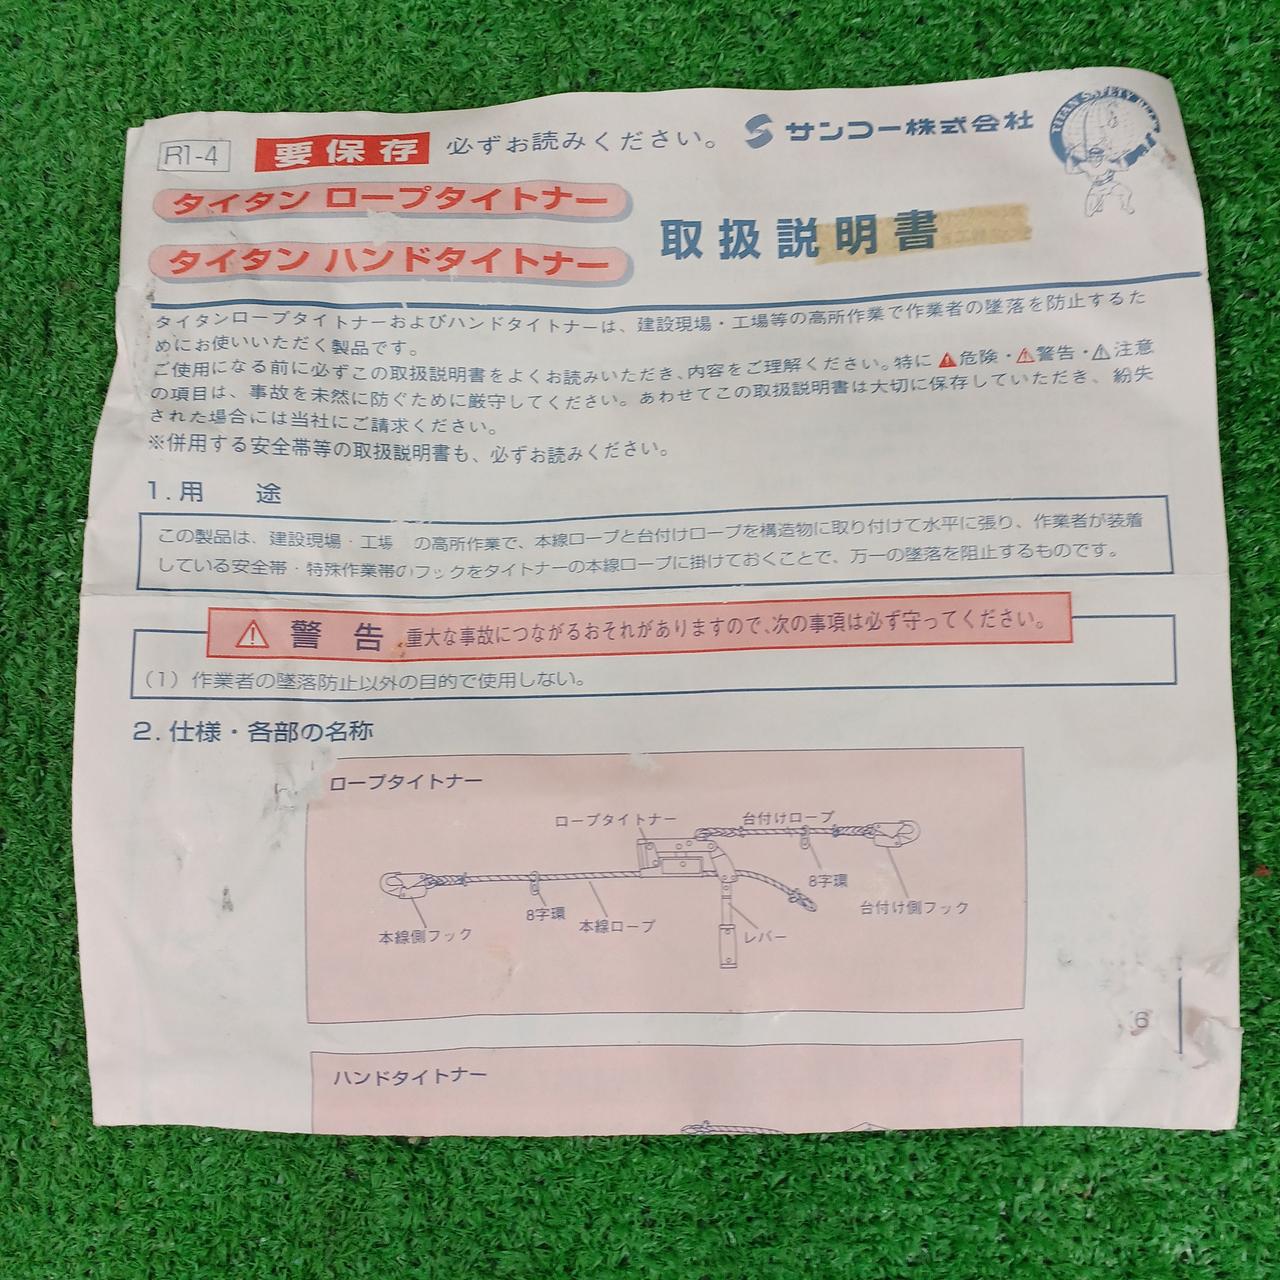 R1-4
要保存 必ずお読みください。
サンコー株式会社
TITAN SAFETY BELT
タイタン ロープタイトナー
タイタン ハンドタイトナー
取扱説明書
タイタンロープタイトナーおよびハンドタイトナーは、建設現場・工場等の高所作業で作業者の墜落を防止するた
めにお使いいただく製品です。
ご使用になる前に必ずこの取扱説明書をよくお読みいただき、内容をご理解ください。特に⚠危険・⚠警告・⚠注意
の項目は、事故を未然に防ぐために厳守してください。あわせてこの取扱説明書は大切に保存していただき、紛失
された場合には当社にご請求ください。
※併用する安全帯等の取扱説明書も、必ずお読みください。
1.用 途
この製品は、建設現場・工場 の高所作業で、本線ロープと台付けロープを構造物に取り付けて水平に張り、作業者が装着
している安全帯・特殊作業帯のフックをタイトナーの本線ロープに掛けておくことで、万一の墜落を阻止するものです。
⚠ 警 告 重大な事故につながるおそれがありますので、次の事項は必ず守ってください。
(1) 作業者の墜落防止以外の目的で使用しない。
2.仕様・各部の名称
ロープタイトナー
ロープタイトナー
台付けロープ
8字環
台付け側フック
8字環
本線ロープ
本線側フック
レバー
6
ハンドタイトナー